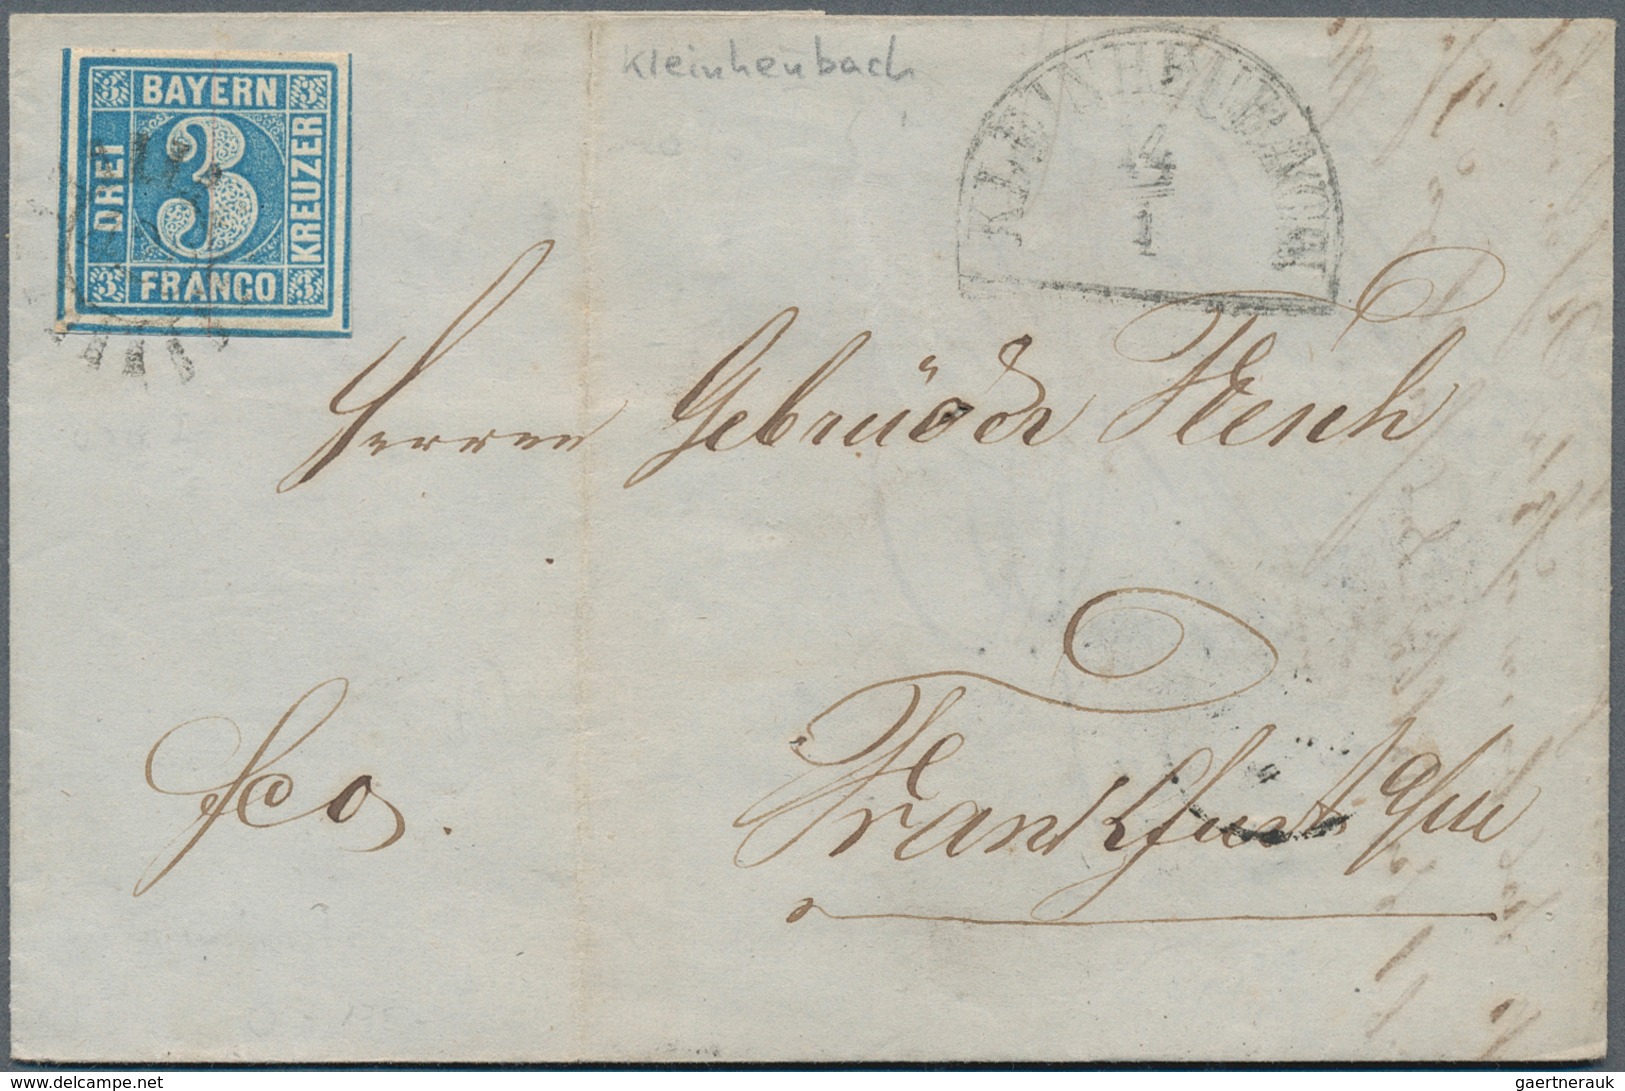 Kleinheubach
KLEINHEUBACH
14
1
3 BAYERN 3
DREI 3 KREUZER
3 FRANCO 3
Herren Gebrüder
Frankfurt a/m
fco.
www.delcampe.net
gaertnerauk